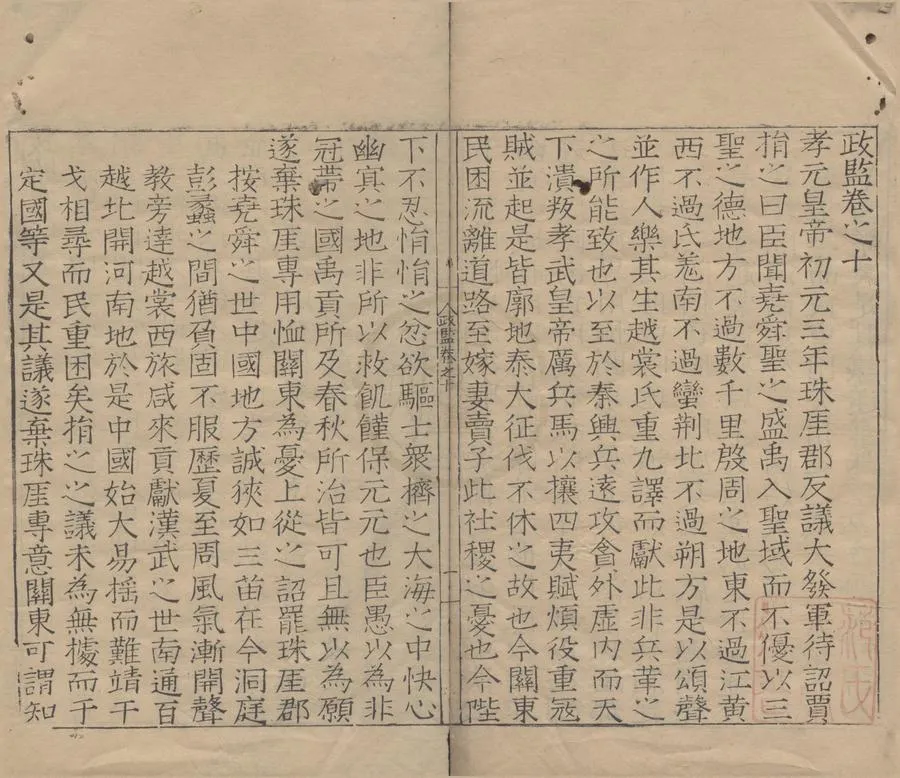 政監卷之十
孝元皇帝初元三年珠厓郡反議大發軍待詔賈
捐之曰臣聞堯舜聖之盛禹入聖域而不優以三
聖之德地方不過數千里殷周之地東不過江黃
西不過氐羗南不過蠻荆北不過朔方是以頌聲
並作人樂其生越裳氏重九譯而獻此非兵革之
之所能致也以至於秦興兵遠攻貪外虛内而天
下潰叛孝武皇帝厲兵馬以攘四夷賦煩役重冦
賊並起是皆廓地泰大征伐不休之故也今關東
民困流離道路至嫁妻賣子此社稷之憂也今陛
政監卷之十
一
下不忍悁悁之忿欲驅士衆擠之大海之中快心
幽冥之地非所以救飢饉保元元也臣愚以為非
冠帶之國禹貢所及春秋所治皆可且無以為願
遂棄珠厓專用恤關東為憂上從之詔罷珠厓郡
按堯舜之世中國地方誠狹如三苗在今洞庭
彭蠡之間猶負固不服歷夏至周風氣漸開聲
教旁達越裳西旅咸來貢獻漢武之世南通百
越北開河南地於是中國始大易揺而難靖干
戈相尋而民重困矣捐之之議未為無據而于
定國等又是其議遂棄珠厓專意關東可謂知